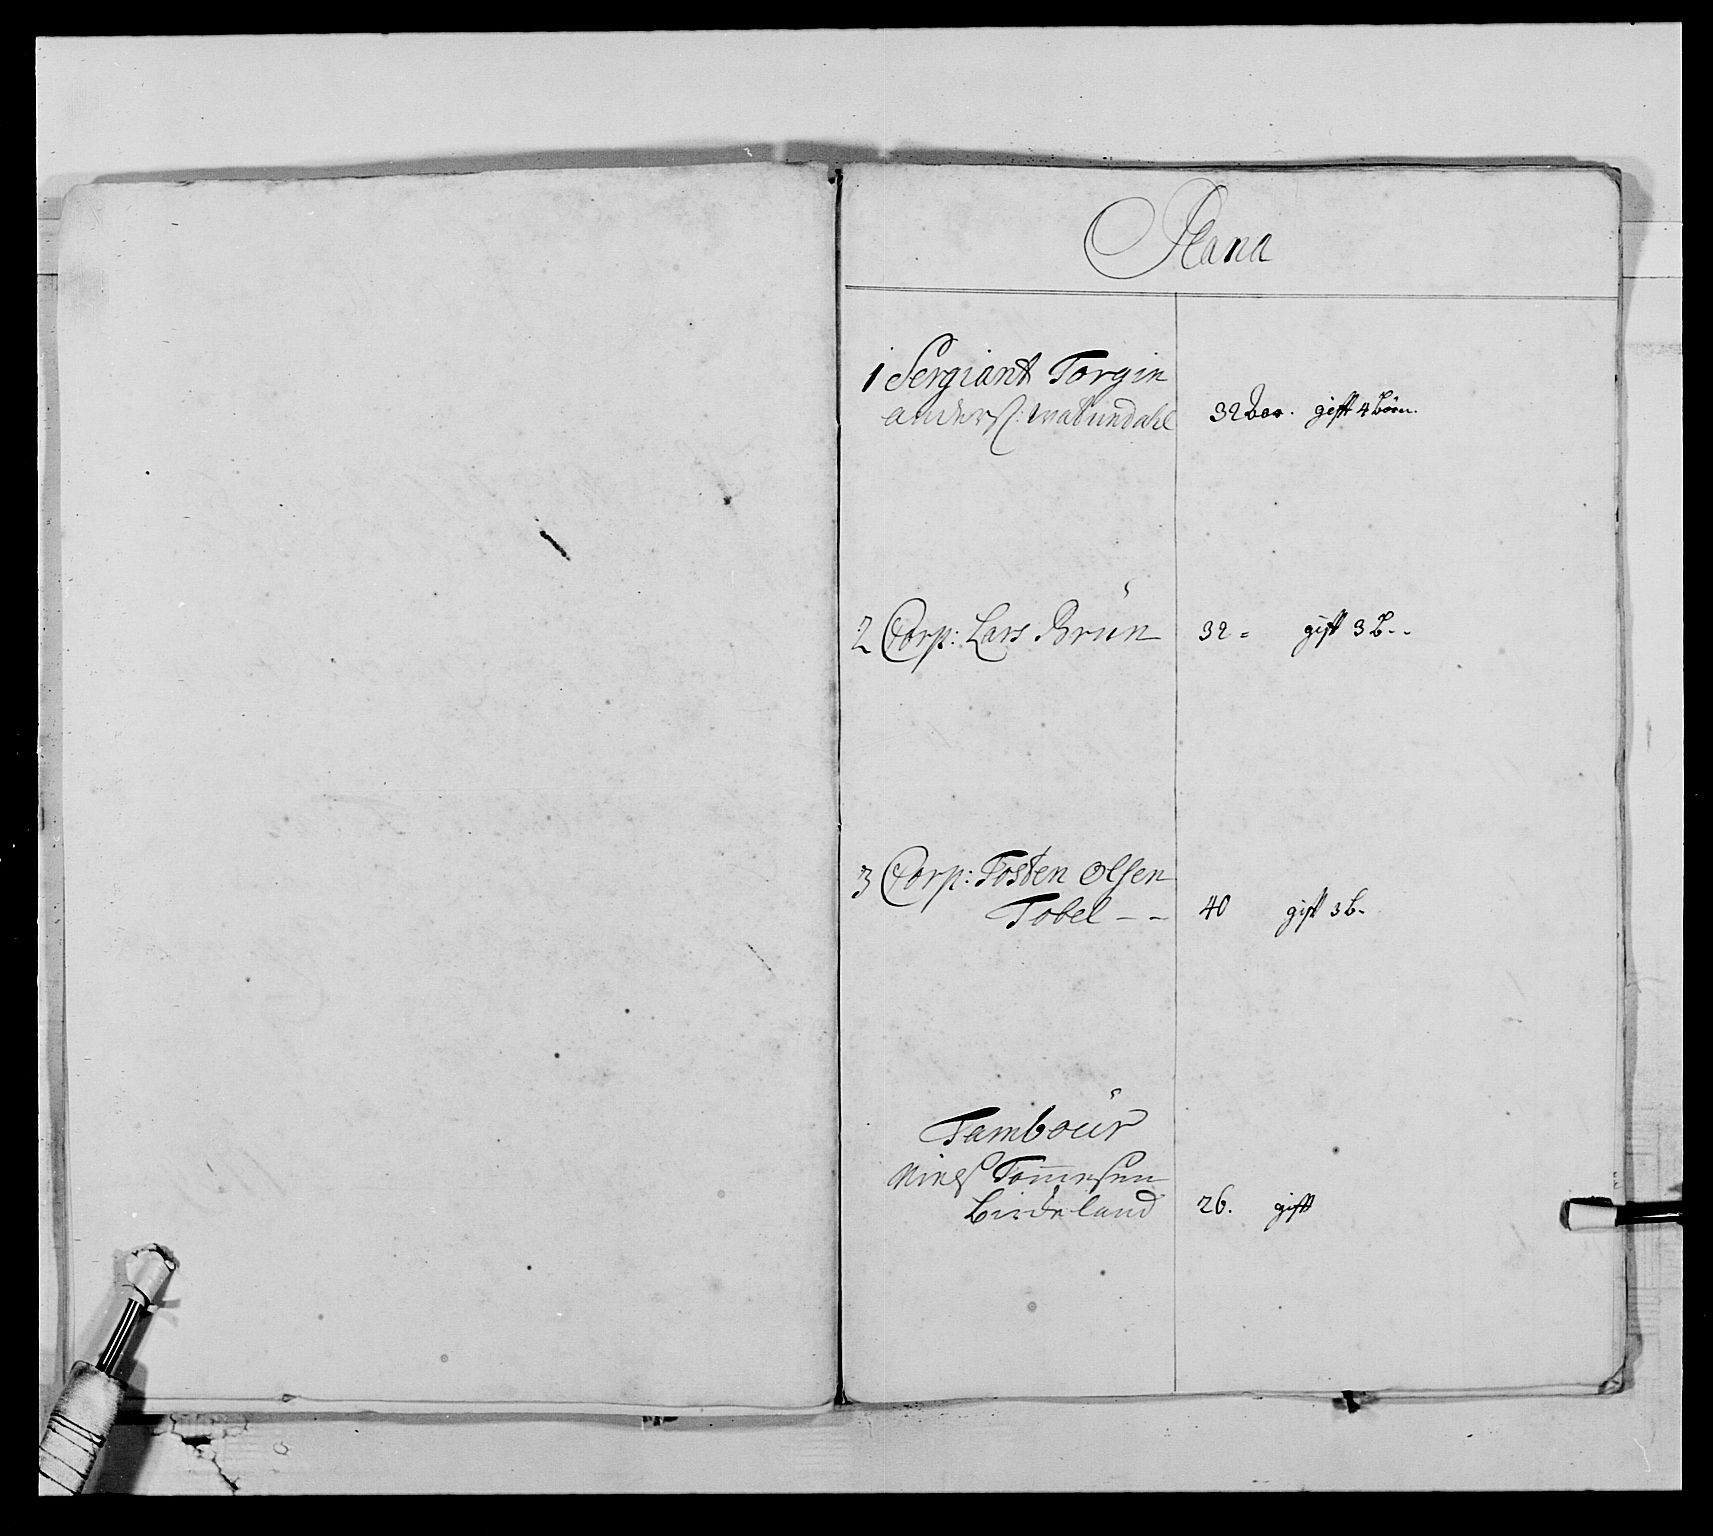 Plana
1 Sergiant Torgin
anders: 32 gift 4 börn.
2 Corp: Lars Brün 32 = gift 3 b--
3 Corp: Tosten Olsen
Tobel -- 40 gift 3 b-
Tamboür
Niels Tom̄esen
Birkeland 26. gift